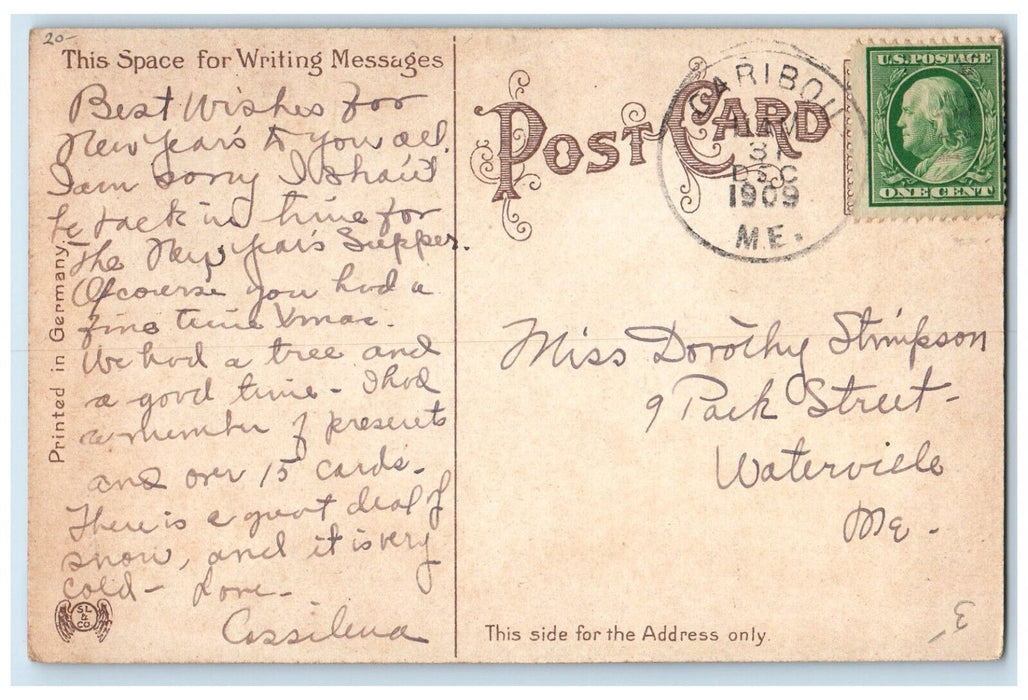 20-
This Space for Writing Messages
Best Wishes for
New Year's to you all.
I am sorry I shan't
be back in time for
the New Year's Supper.
Of course you had a
fine time Xmas.
We had a tree and
a good time - I had
a number of presents
and over 15 cards.
There is a great deal of
snow, and it is very
cold - Love -
Cassilena
Printed in Germany.
SL
&
Co
POST CARD
CARIBOU
31
DEC
1909
ME.
U.S. POSTAGE
ONE CENT
Miss Dorothy Stimpson
9 Park Street -
Waterville
Me.
This side for the Address only.